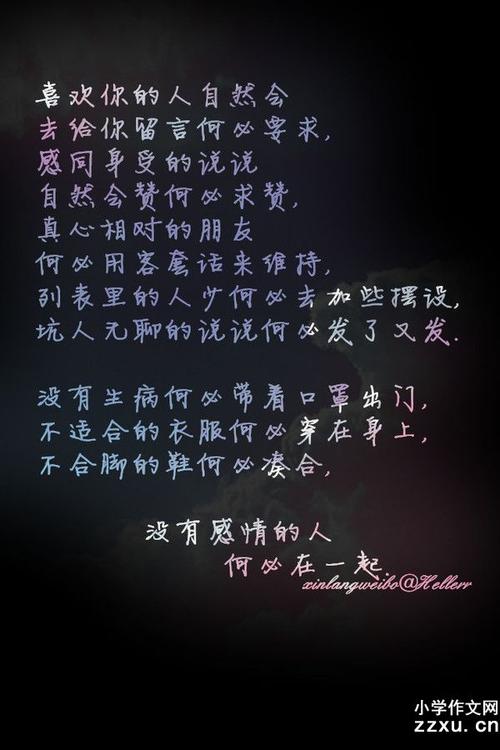 喜欢你的人自然会
去给你留言何必要求,
感同身受的说说
自然会赞何必求赞,
真心相对的朋友
何必用客套话来维持,
列表里的人少何必去加些摆设,
坑人无聊的说说何必发了又发.
没有生病何必带着口罩出门,
不适合的衣服何必穿在身上,
不合脚的鞋何必凑合,
没有感情的人
何必在一起.
xinlangweibo@Hellerr
小学作文网
zzxu.cn